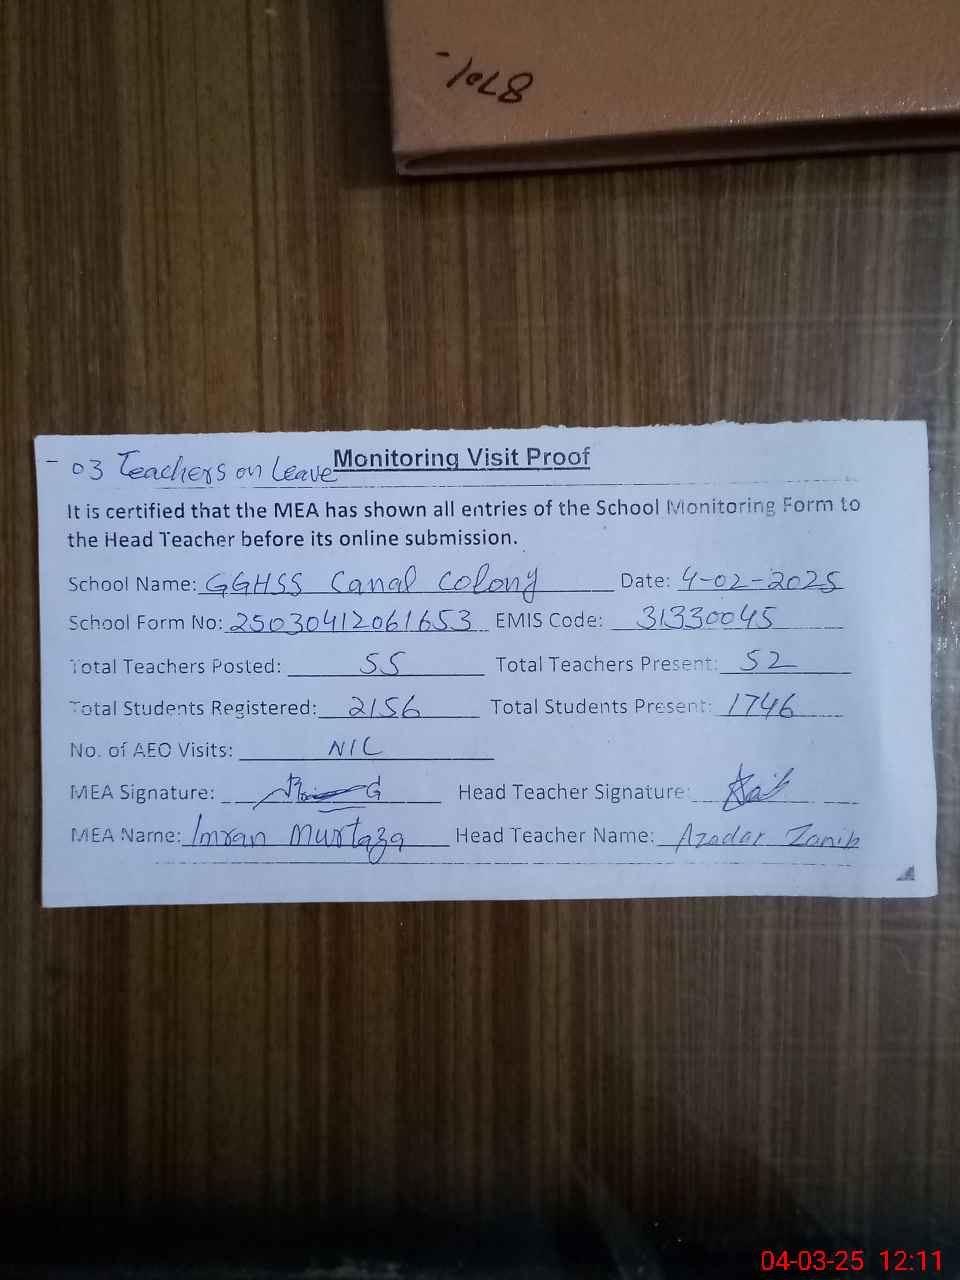 -1028
- 03 Teachers on Leave Monitoring Visit Proof
It is certified that the MEA has shown all entries of the School Monitoring Form to
the Head Teacher before its online submission.
School Name: GGHSS Canal Colony Date: 4-02-2025
School Form No: 25030412061653 EMIS Code: 31330045
Total Teachers Posted: 55 Total Teachers Present: 52
Total Students Registered: 2156 Total Students Present: 1746
No. of AEO Visits: NIL
MEA Signature: Head Teacher Signature:
MEA Name: Imran Murtaza Head Teacher Name: Azadar Zanib
04-03-25 12:11